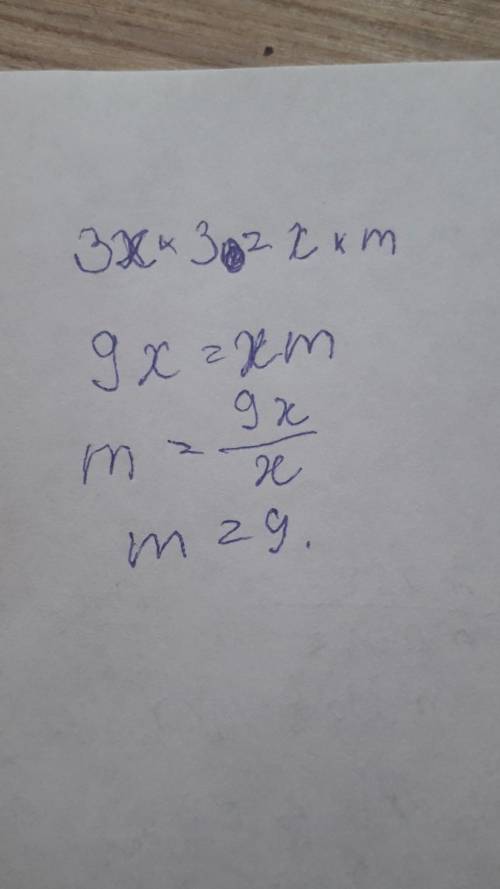 3x × 3 = x × m
9x = xm
m = 9x/x
m = 9.